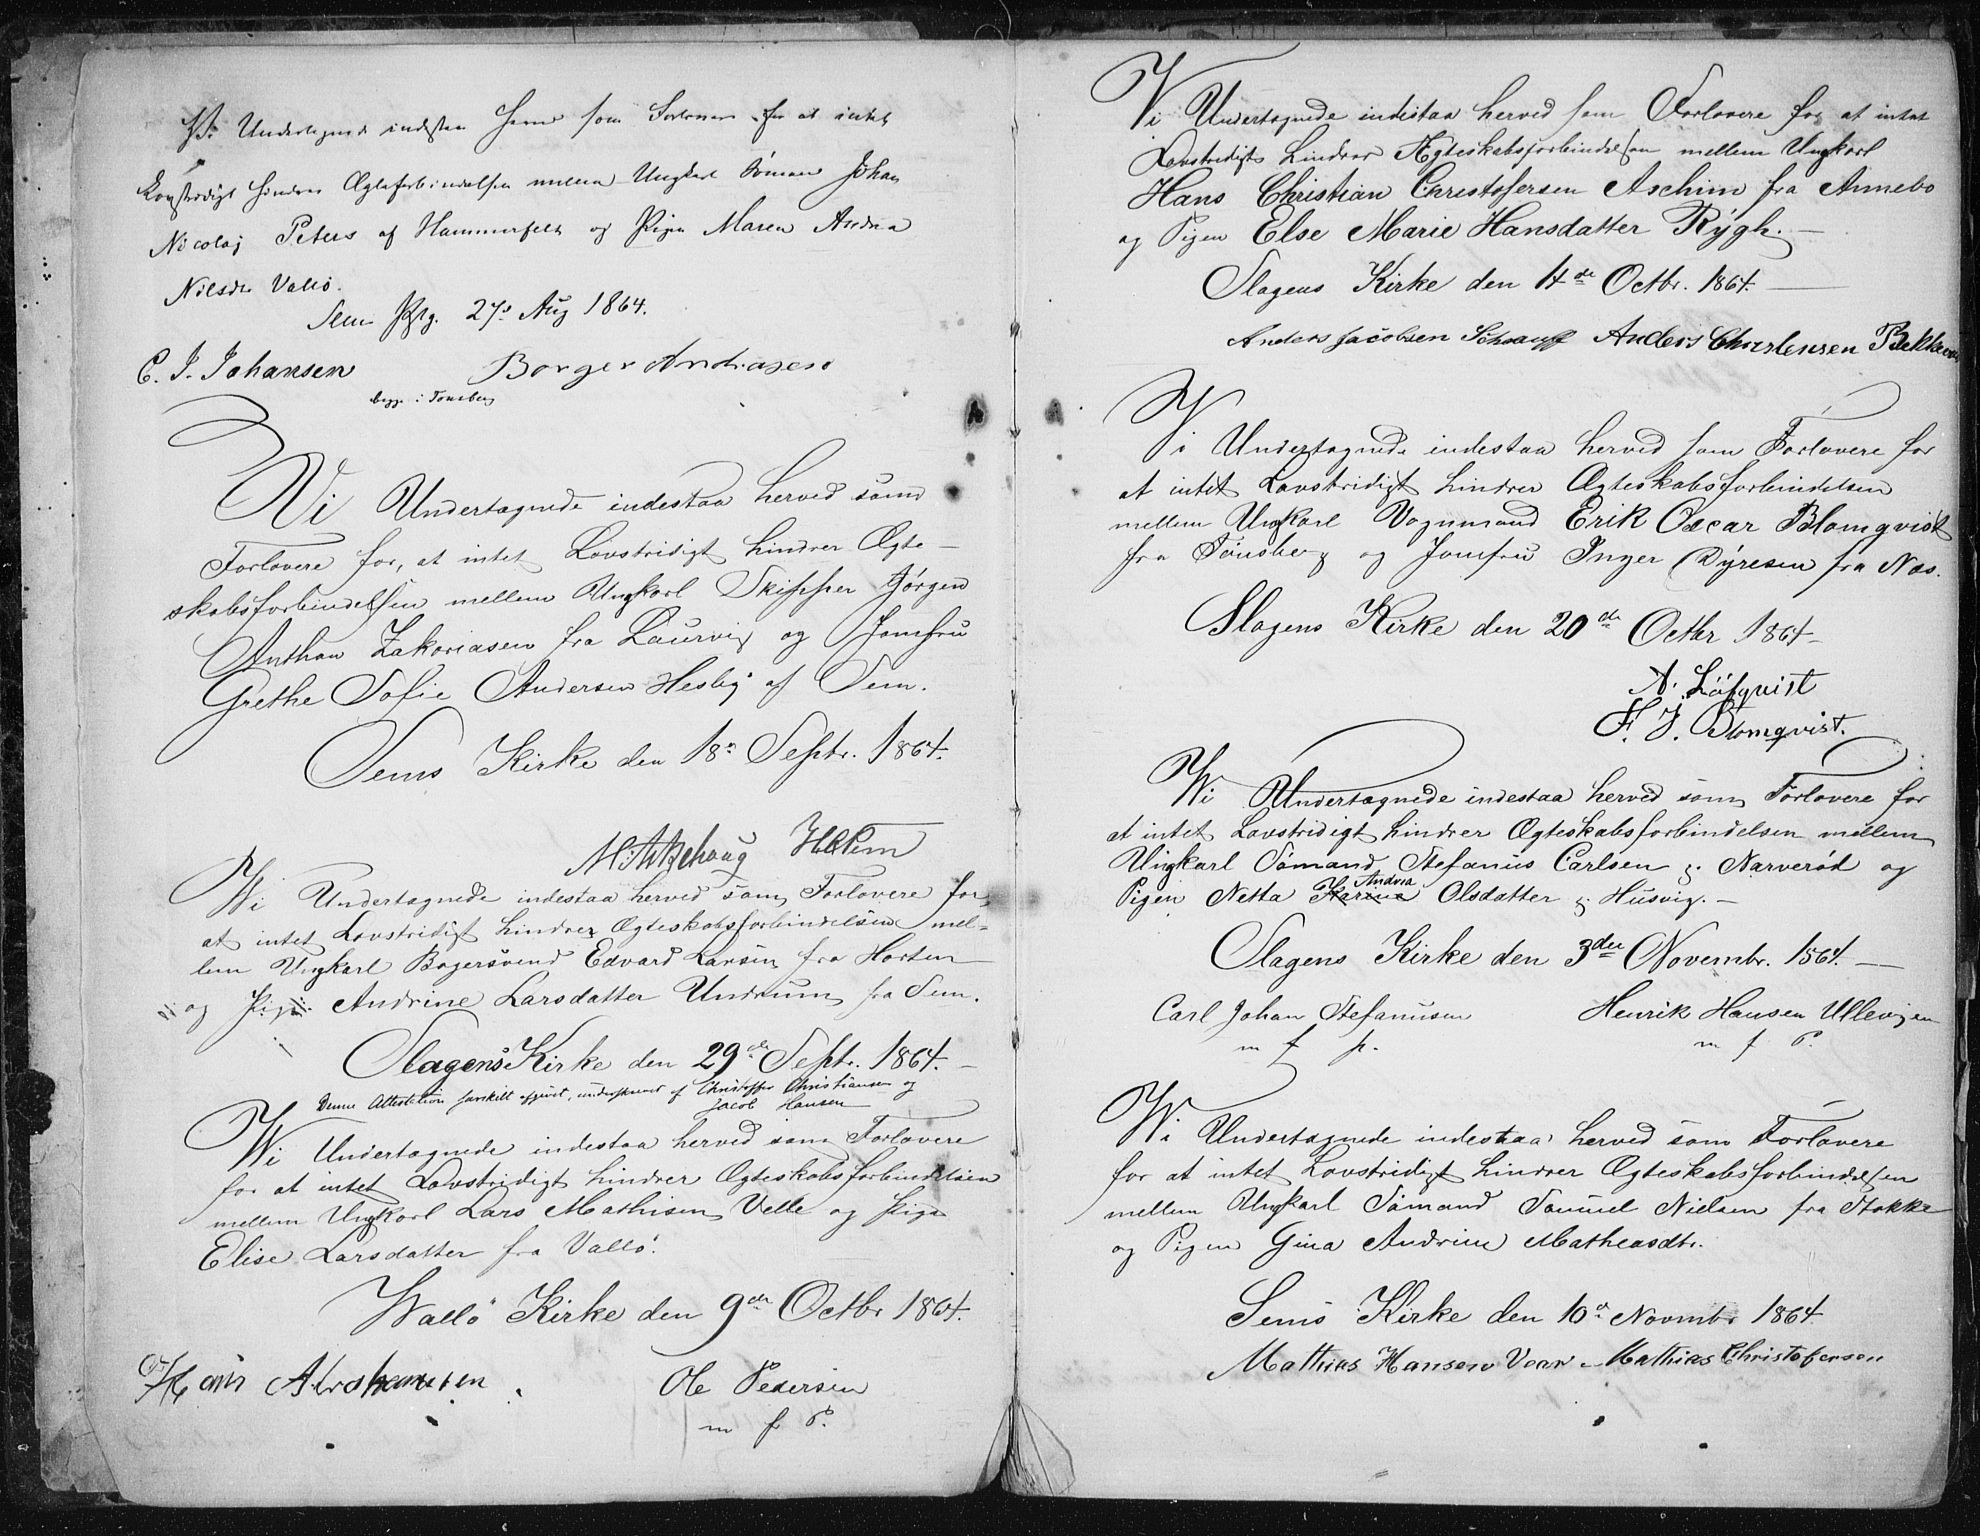 Vi Undertegnede indestaa herved som Forlovere for at intet
Lovstridigt hindrer Ægteforbindelsen mellem Ungkarl Sømand Johan
Nicolaj Peters af Hammerfest og Pigen Maren Andrea
Nilsdr Vallø.
Sem Prg. 27de Aug 1864.
C. J. Johansen Borger Andreasen
begge i Tønsberg
Vi Undertegnede indestaa herved som
Forlovere for, at intet Lovstridigt hindrer Ægte-
skabsforbindelsen mellem Ungkarl Skipper Jørgen
Anthon Zakariasen fra Laurvig og Jomfru
Grethe Sofie Andersen Hesby af Sem.
Sems Kirke den 18de Septr. 1864.
Wi Undertegnede indestaa herved som Forlovere for
at intet Lovstridigt hindrer Ægteskabsforbindelsen mel-
lem Ungkarl Bagersvend Edvard Larsen fra Horten
og Pigen Andrine Larsdatter Undrum fra Sem.
Slagens Kirke den 29de Septr. 1864.
Denne Attestation særskilt afgivet, underskrevet af Christoffer Christiansen og
Jacob Hansen
Wi Undertegnede indestaa herved som Forlovere
for at intet Lovstridigt hindrer Ægteskabsforbindelsen
mellem Ungkarl Lars Mathisen Velle og Pige
Elise Larsdatter fra Vallø.
Wallø Kirke den 9de Octbr 1864.
Hans Abrahamsen Ole Pedersen
m f P.
Vi Undertegnede indestaa herved som Forlovere for at intet
Lovstridigt hindrer Ægteskabsforbindelsen mellem Ungkarl
Hans Christian Christofersen Aschim fra Annebo
og Pigen Else Marie Hansdatter Rygh.
Slagens Kirke den 14de Octbr. 1864.
Anders Jacobsen Anders Christensen Bekkevar
Wi Undertegnede indestaa herved som Forlovere for
at intet Lovstridigt hindrer Ægteskabsforbindelsen
mellem Ungkarl Vognmand Erik Oscar Blomqvist
fra Tønsberg og Jomfru Inger Dyresen fra Næs.
Slagens Kirke den 20de Octbr 1864
A. Löfqvist
F. J. Blomqvist.
Wi Undertegnede indestaa herved som Forlovere for
at intet Lovstridigt hindrer Ægteskabsforbindelsen mellem
Ungkarl Sømand Stefanus Carlsen p. Narverød og
Pigen Netta Karine Andrea Olsdatter p. Husvig.
Slagens Kirke den 3die Novembr. 1864.
Carl Johan Stefanusen Henrik Hansen Ullevigen
m f p. m f P.
Wi Undertegnede indestaa herved som Forlovere
for at intet Lovstridigt hindrer Ægteskabsforbindelsen
mellem Ungkarl Sømand Samuel Nielsen fra Stokke
og Pigen Gina Andrine Matheasdtr.
Sems Kirke den 10de Novmbr 1864.
Mathias Hansen Vear Mathias Christofersen